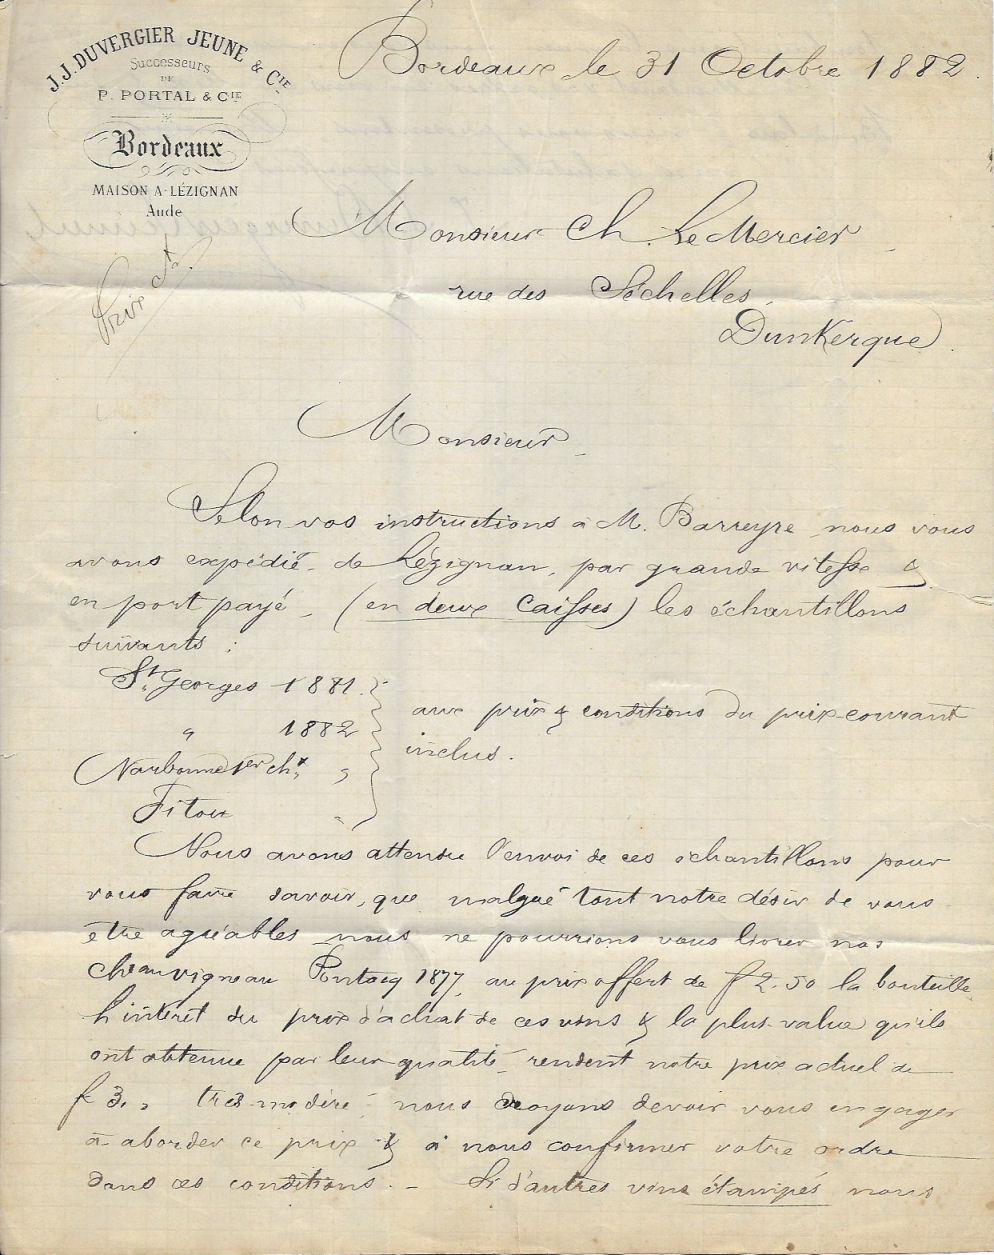 J.J. DUVERGIER JEUNE & Cie
Successeurs
DE
P. PORTAL & Cie
Bordeaux
MAISON A LÉZIGNAN
Aude
Bordeaux le 31 Octobre 1882.
Monsieur Ch. Le Mercier
rue des Séchelles.
Dunkerque.
Prix ct
Monsieur
Selon vos instructions à M. Barreyre nous vous
avons expédié de Lézignan, par grande vitesse &
en port payé (en deux caisses) les échantillons
suivants :
St Georges 1881
" 1882
Narbonne 1er chx "
Fitou "
aux prix & conditions du prix-courant
inclus.
Nous avons attendu l'envoi de ces échantillons pour
vous faire savoir, que malgré tout notre désir de vous
être agréables nous ne pourrions vous livrer nos
1877, au prix offert de f 2.50 la bouteille
L'intérêt du prix d'achat de ces vins & la plus-value qu'ils
ont obtenue par leur qualité, rendent notre prix actuel de
f 3. " très modéré : nous croyons devoir vous engager
à aborder ce prix & à nous confirmer votre ordre
dans ces conditions. - Si d'autres vins étampés nous